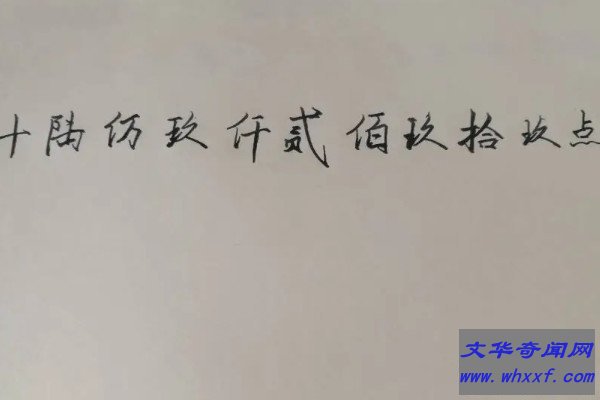 十陆仿玖仟贰佰玖拾玖点
文华奇闻网
www.whxxf.com